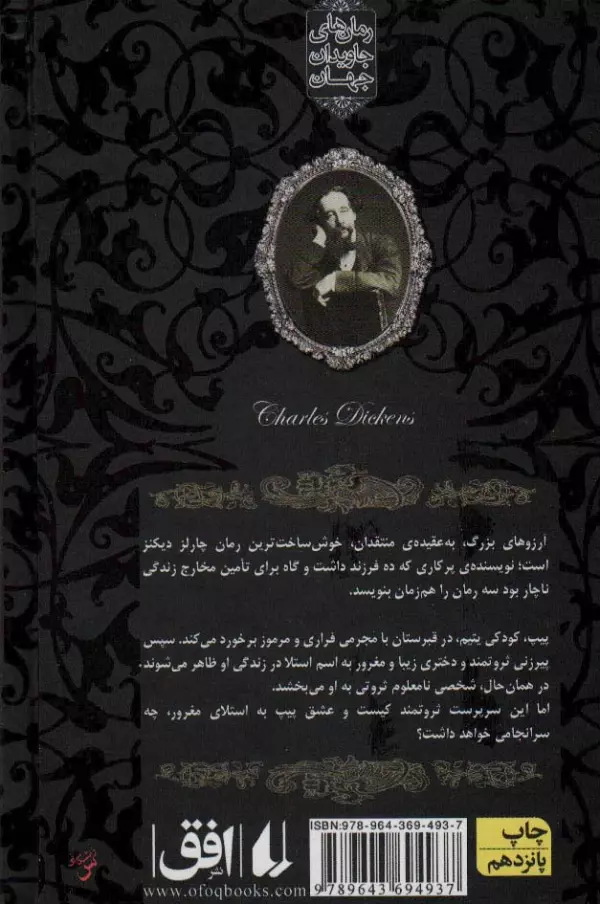 رمان‌های
جاویدان
جهان
Charles Dickens
آرزوهای بزرگ، به‌عقیده‌ی منتقدان، خوش‌ساخت‌ترین رمان چارلز دیکنز
است؛ نویسنده‌ی پرکاری که ده فرزند داشت و گاه برای تأمین مخارج زندگی
ناچار بود سه رمان را هم‌زمان بنویسد.
پیپ، کودکی یتیم، در قبرستان با مجرمی فراری و مرموز برخورد می‌کند. سپس
پیرزنی ثروتمند و دختری زیبا و مغرور به اسم استلا در زندگی او ظاهر می‌شوند.
در همان‌حال، شخصی نامعلوم ثروتی به او می‌بخشد.
اما این سرپرست ثروتمند کیست و عشق پیپ به استلای مغرور، چه
سرانجامی خواهد داشت؟
نشر افق
www.ofoqbooks.com
ISBN:978-964-369-493-7
9789643694937
چاپ
پانزدهم